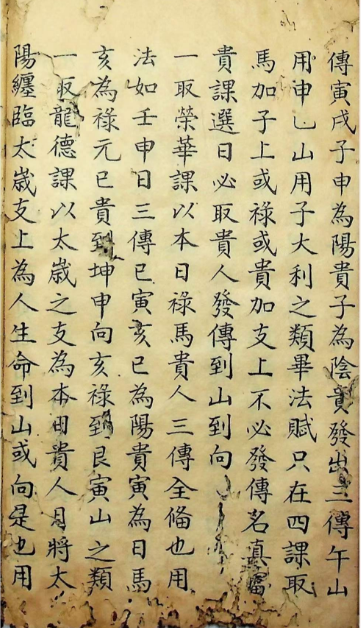 傳寅戌子申為陽貴子為陰貴發出三傳午山
用申乚山用子大利之類畢法賦只在四課取
馬加子上或祿或貴加支上不必發傳名真富
貴課選日必取貴人發傳到山到向
一取榮華課以本日祿馬貴人三傳全俻也用
法如壬申日三傳巳寅亥巳為陽貴寅為日馬
亥為祿元巳貴到坤申向亥祿到艮寅山之類
一取龍德課以太歲之支為本日貴人月將太
陽纏臨太歲支上為人生命到山或向是也用